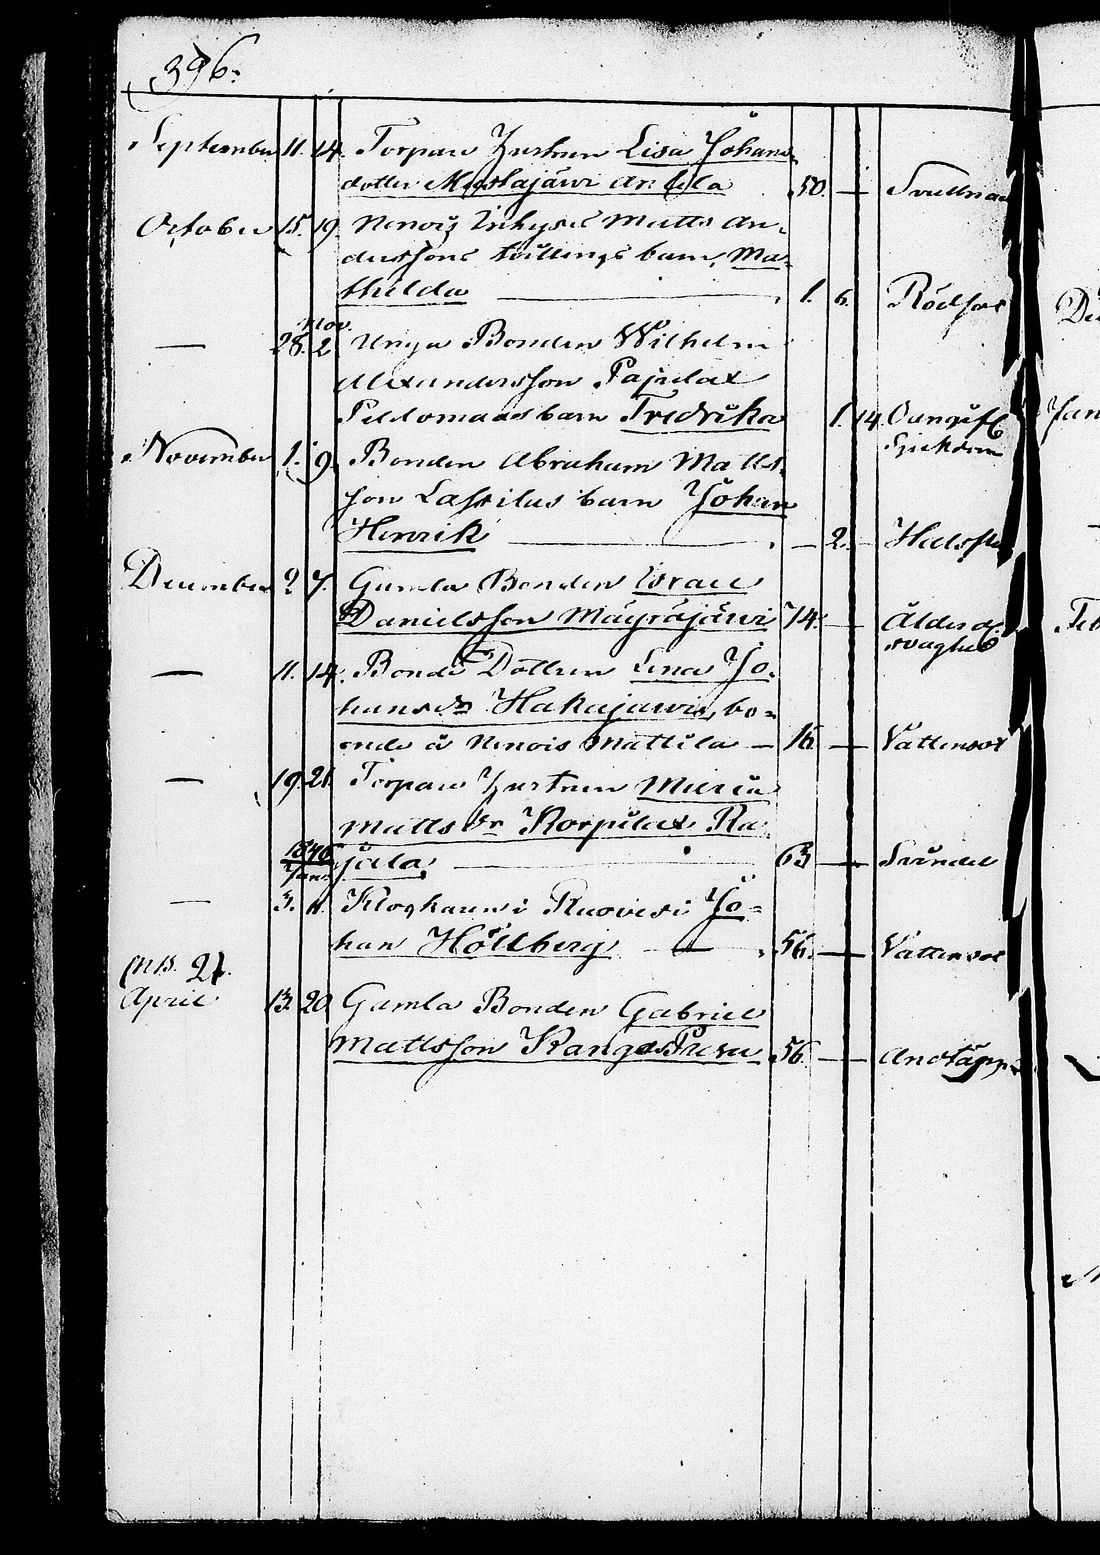 396.
September 11. 14. Torpare Hustrun Lisa Johans
dotter Mustajärvi Anttila 50. — Svullnad
October 15. 19. Nenois Inhyses Matts An-
derssons tvillings barn, Ma-
thilda — 1. 6. Rödsot
— 28. Nov. 2. Unga Bonden Wilhelm
Alexandersson Pajulax
Peldomaas barn Fredrika 1. 14. Oangifl
Sjukdom
November 1. 9. Bonden Abraham Matts-
son Lassilas barn Johan
Henrik — — 2. — Halsflu
December 2 7. Gamla Bonden Israel
Danielsson Mäyräjärvi 74. — Ålderd.
svaghet
— 11. 14. Bonde Dottren Lena Jo-
hansdr Hakajärvi, bo-
ende å Nenois Mattila — 16 — Vattensot
— 19. 21. Torpare Hustrun Maria
Mattsdr Korpilax Ra-
1846 jala, — 63 — Svindel
Jan.
— 3. 11. Klockaren i Ruovesi Jo-
han Höllberg — 56. — Vattensot
(NB. 21.
April 13. 20 Gamla Bonden Gabriel
Mattsson Kangas 56. — Andtäpp